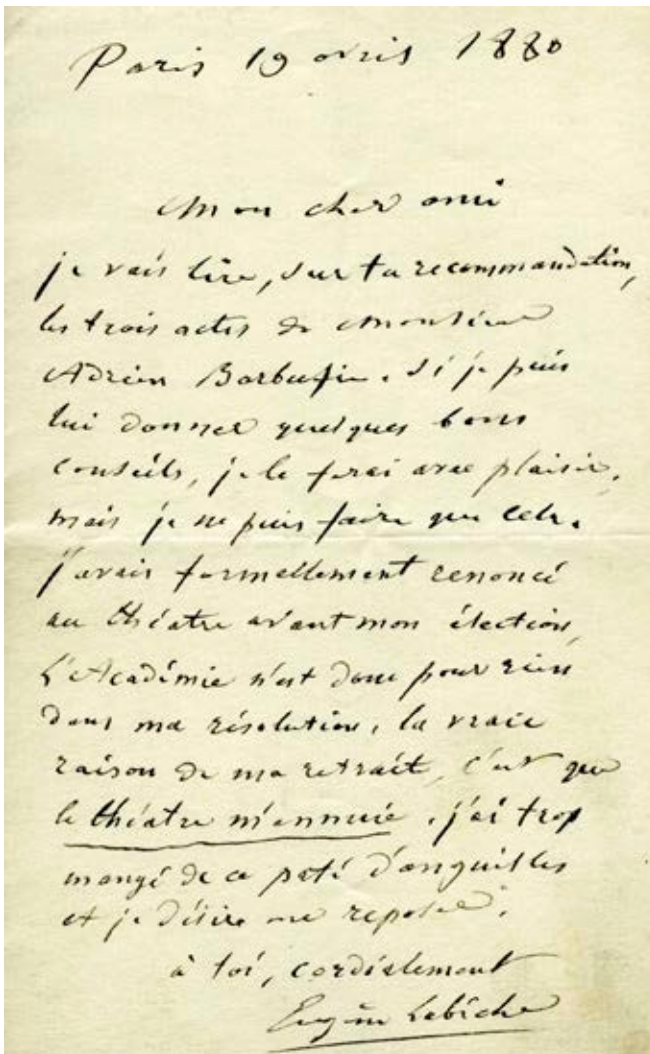 Paris 19 avril 1880
Mon cher ami
je vais lire, sur ta recommandation,
les trois actes de Monsieur
Adrien Barbusse. Si je puis
lui donner quelques bons
conseils, je le ferai avec plaisir,
mais je ne puis faire que cela.
j'avais formellement renoncé
au théatre avant mon élection,
L'Académie n'est donc pour rien
dans ma résolution, la vraie
raison de ma retrait, c'est que
le théatre m'ennuie. j'ai trop
mangé de ce paté d'anguilles
et je désire me reposer.
à toi, cordialement
Eugène Labiche